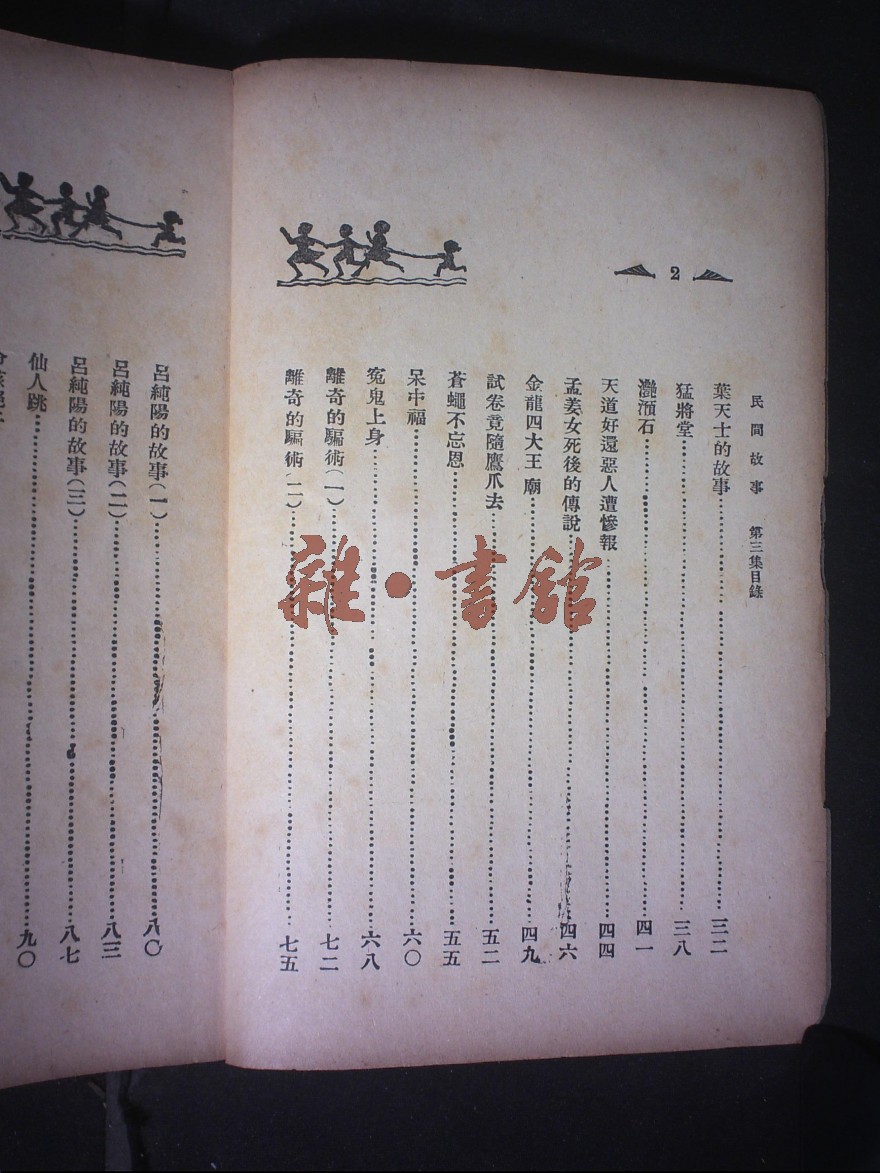 民間故事 第三集目錄
2
葉天士的故事 三二
猛將堂 三八
灔澦石 四一
天道好還惡人遭慘報 四四
孟姜女死後的傳說 四六
金龍四大王廟 四九
試卷竟隨鷹爪去 五二
蒼蠅不忘恩 五五
呆中福 六〇
冤鬼上身 六八
離奇的騙術(一) 七二
離奇的騙術(二) 七五
呂純陽的故事(一) 八〇
呂純陽的故事(二) 八三
呂純陽的故事(三) 八七
仙人跳 九〇
雜·書館